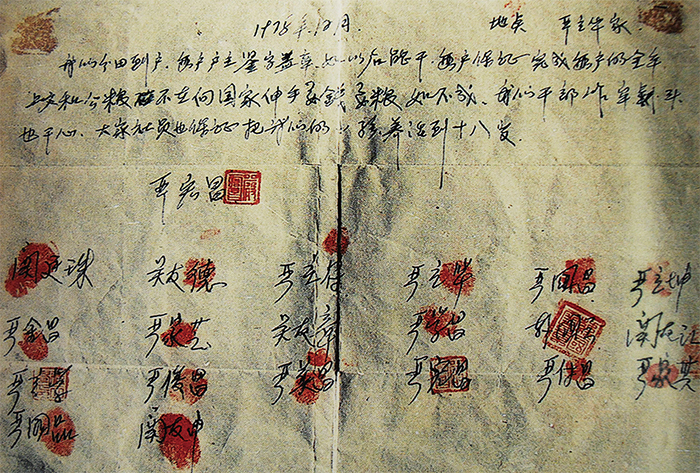 1978年12月. 地点 严立华家
我们分田到户,每户户主签字盖章,如以后能干,每户保证完成每户的全年
上交和公粮,不在向国家伸手要钱要粮,如不成,我们干部作牢刹头
也干心,大家社员也保证把我们的小孩养活到十八岁.
严宏昌
关廷珠 关友德 严立付 严立华 严国昌 严立坤
严金昌 严家芝 关友章 严学昌 韩国云 关友江
严立学 严俊昌 严美昌 严宏昌 严付昌 严家其
严国品 关友申